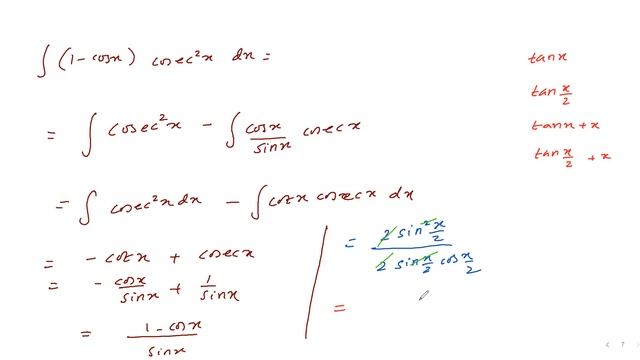 ∫ (1 - cosx) cosec²x dx =
= ∫ cosec²x - ∫ cosx/sinx cosecx
= ∫ cosec²x dx - ∫ cotx cosecx dx
= - cotx + cosecx
= - cosx/sinx + 1/sinx
= 1 - cosx/sinx
= 2 sin² x/2 / 2 sin x/2 cos x/2
=
tanx
tan x/2
tanx + x
tan x/2 + x
< 7 >